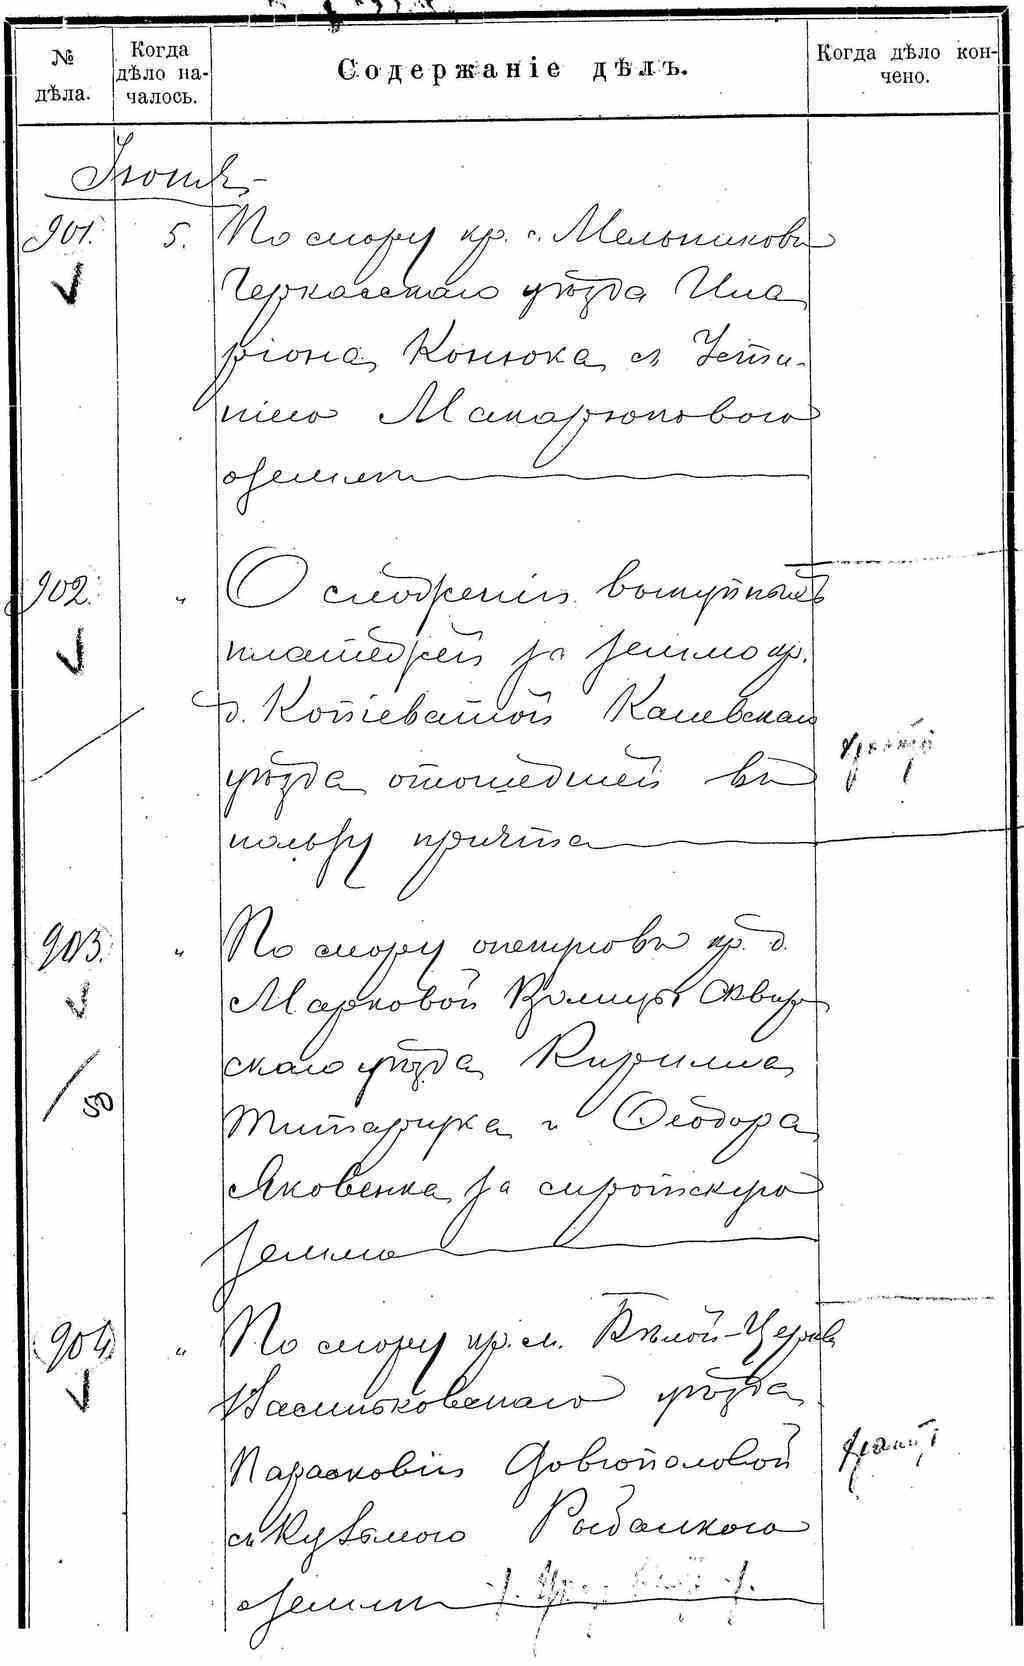 № дѣла.
Когда дѣло на-
чалось.
Содержаніе дѣлъ.
Когда дѣло кон-
чено.
Іюнь
901. 5. По спору кр. с. Мельниковъ
Черкасскаго уѣзда Ила
ріона Конюка съ Усти-
ніею Макарюковою
о землѣ
902. " О сложеніи выкупныхъ
платежей за землю кр.
д. Копіеватой Каневскаго
уѣзда отошедшей въ
пользу причта
903. " По спору опекуновъ кр. д.
Марковой Волицы Сквир
скаго уѣзда Кирилла
Титарука и Ѳеодора
Яковенка за сиротскую
землю
50
904. " По спору кр. м. Бѣлой-Церкви
Васильковскаго уѣзда
Парасковіи Довгополовой
съ Кузьмою Рыбалкою
о землѣ